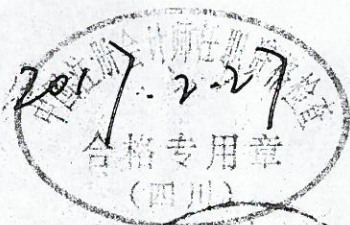 中国注册会计师任职资格检查
2017.2.27
合格专用章
(四川)